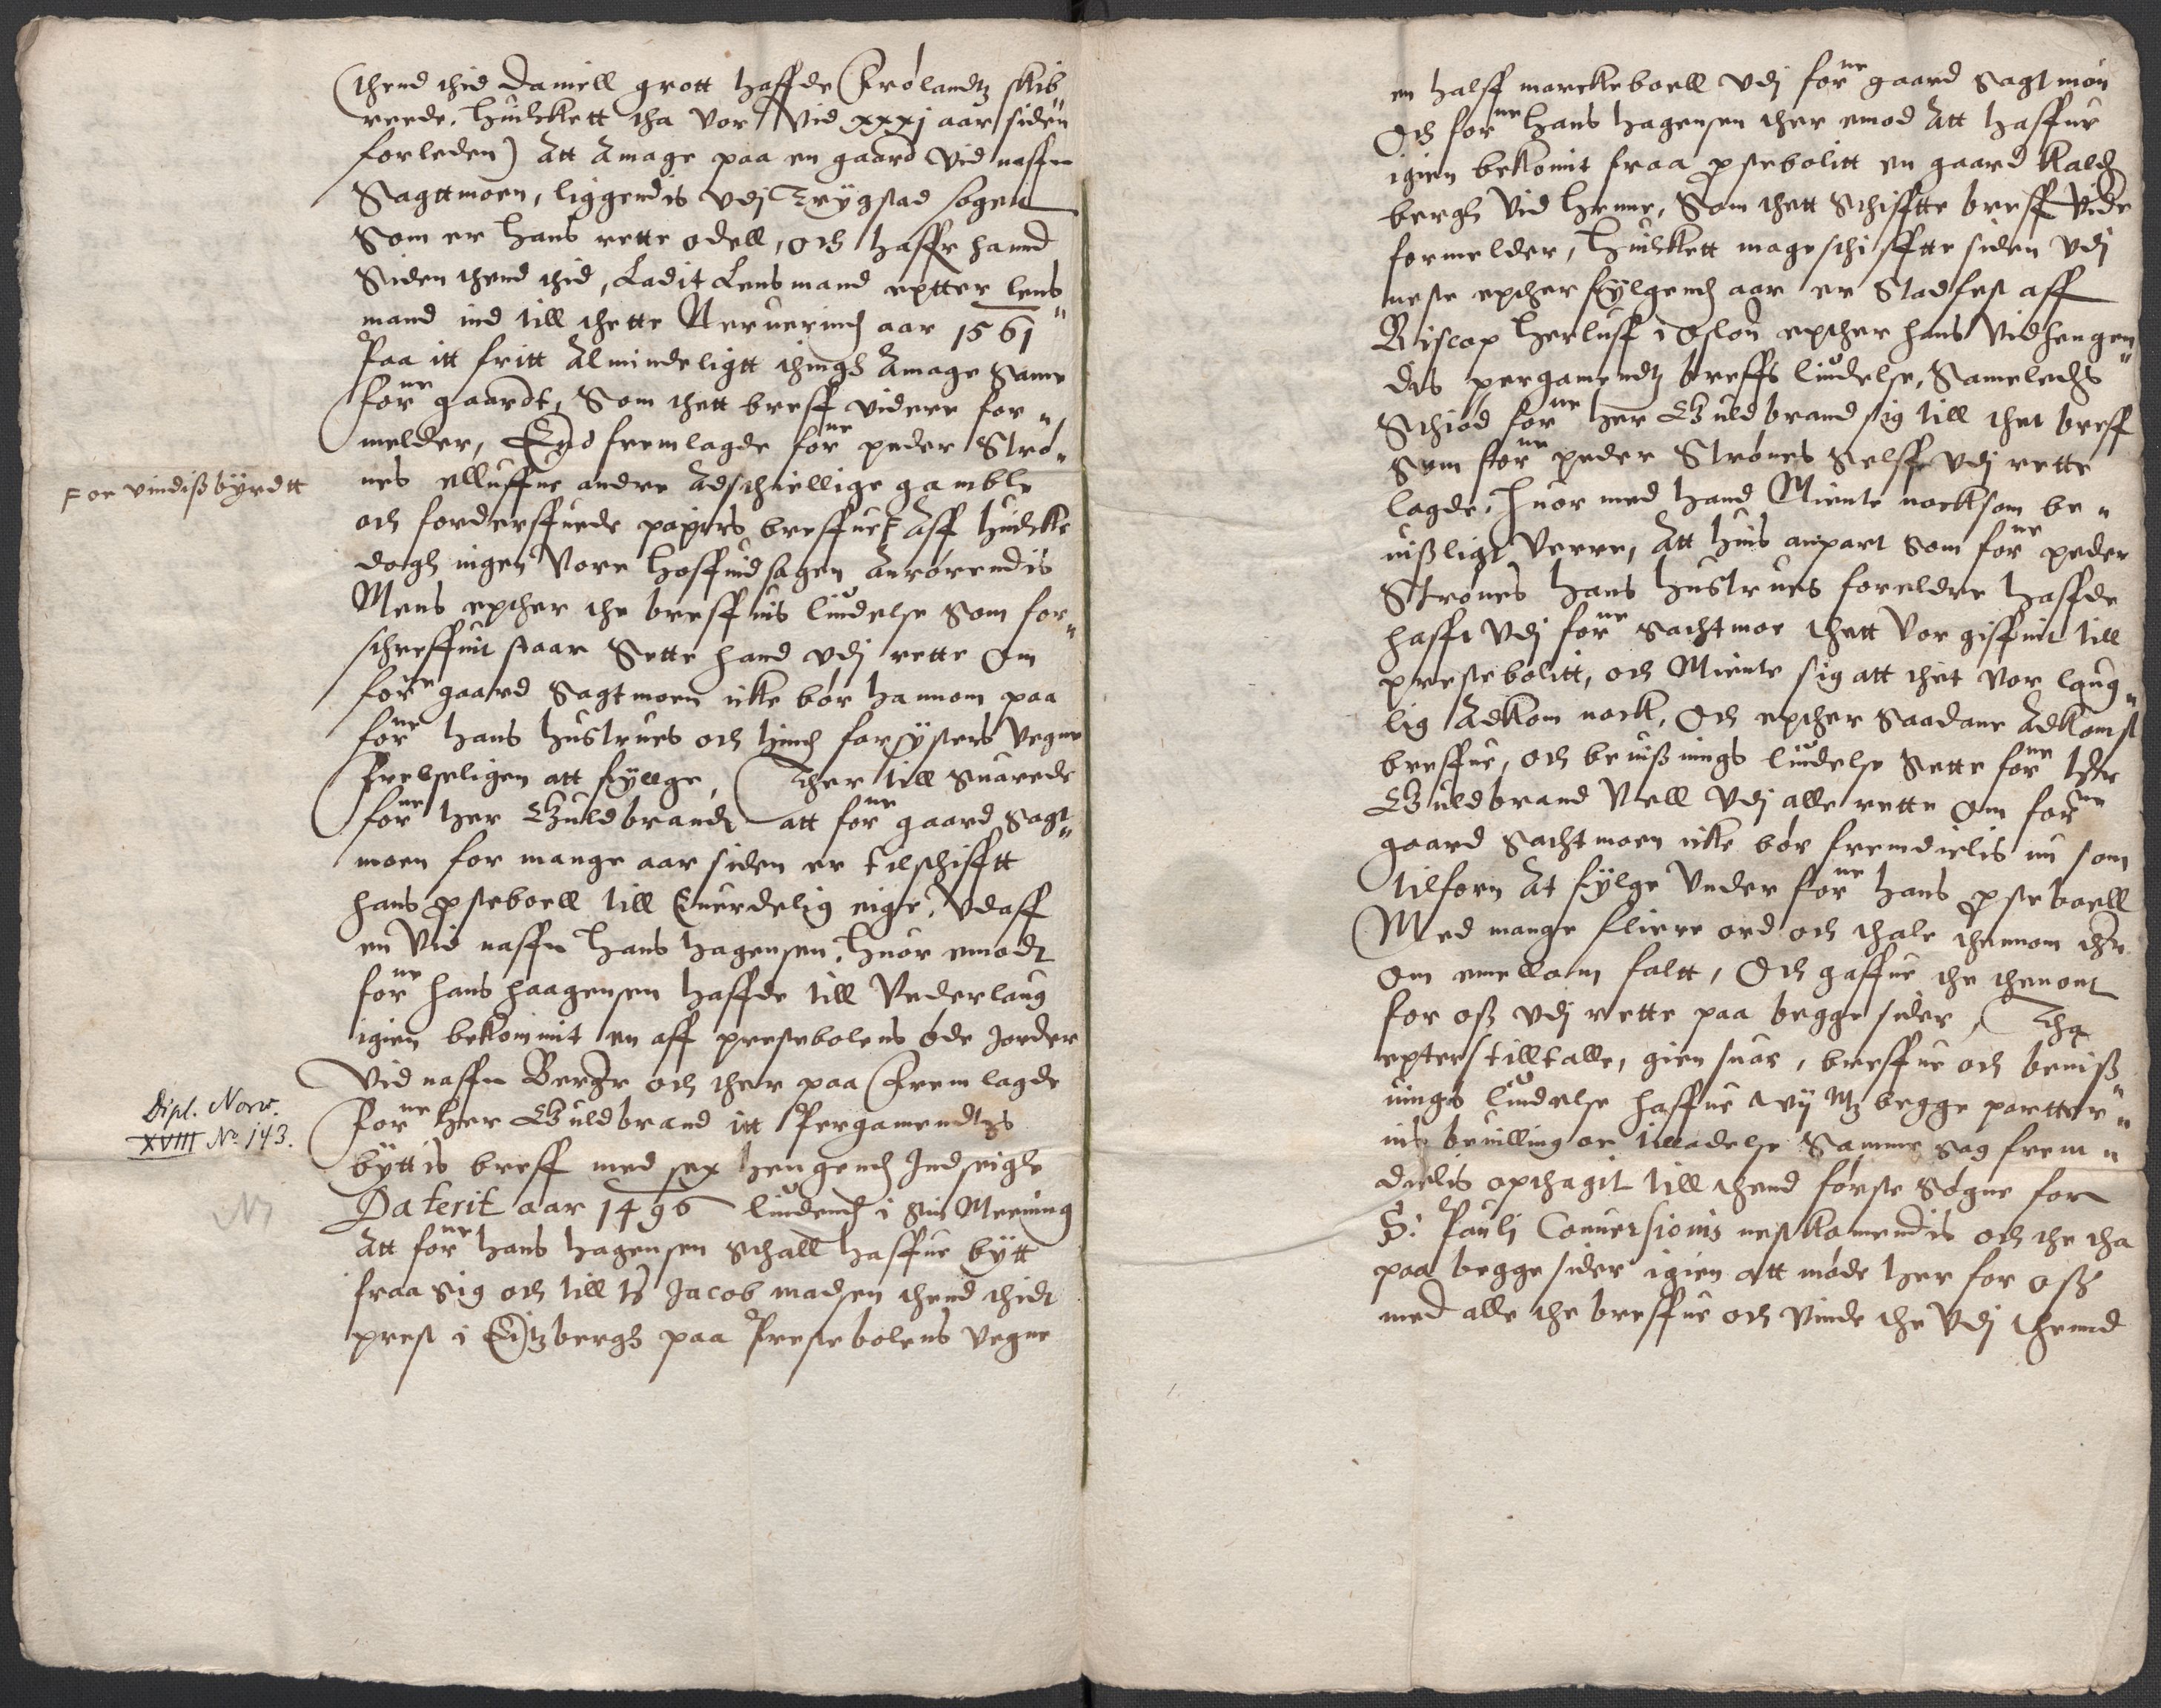 (thend thid Daniell grott haffde Frølandtz skib
reede, huilckett tha vor vid xxxj aar siden
forleden) Att Amage paa en gaard vid naffn
Sagttmoen, liggendis vdj Trygstad sogen
Som er hans rette odell, och haffr hannd
Siden thend thid, Ladit Lensmand eptter lens"
mand ind till thette Neruerind aar 1561
Paa itt fritt Almindeligtt thingh Amage Same
forne gaardt, Som thett breff videre for"
melder, End fremlagde forne peder Strø"
nes elluffue andre Adschiellige gamble
For vindiß byrdtt
och forderffuede papirs breffue Aff huilcke
dogh ingen Vore hoffuidsagen Anrørendis
Mens epther the breffuis liudelse som for"
schreffuit staar Sette hand vdj rette Om
forne gaard Sagtmoen icke bør hannom paa
forne hans hustrues och hind farsysters vegne
frelseligen att fyllge, Ther till suarede
forne her Guldbrandt att forne gaard Sagt"
moen for mange aar siden er tilschifftt
hans psteboell till Euerdelig eige, vdaff
en vid naffn hans hagensen, huor emodt
forne hans haagensen haffde till Vederlaug
igien bekommit en aff prestebolens øde Jorder
Vid naffn Berger och ther paa fremlagde
Dipl. Norv.
XVIII No 143.
forne her Guldbrand itt Pergamendtzs
byttis breff med sex hengend Indseigle
Daterit aar 1496 liudend i sin Meening
Att forne hans hagensen Schall haffue bytt
fraa sig och till hr Jacob madsen thend thidt
prest i Eitzbergh paa Prestebolens vegne
en halff marckeboell vdj forne gaard Sagtmon
Och forne hans hagensen ther emod Att haffue
igien bekomit fraa pstebolitt en gaard kald
bergh vid henne, Som thett Schifftte breff vide
formelder, huilckett mageschifftte siden vdj
neste epther fylgend aar er Stadfest aff
Biscop herluff i Oslou epther hans vidhengen"
dis pergamendtz breffs liudelse, Sameledhs
Schiød forne her Guldbrand sig till thet breff
Som forne peder Strønes Selff vdj rette
lagde, huor med hand Miente nocksom be"
uißligt Verre, Att huis anpart som forne peder
Strønes hans hustrues foreldre haffde
hafft vdj forne Sachtmoe thett Vor giffuit till
prestebolitt, och Miente sig att thet vor laug"
lig Adkom nock, Och epther Saadane Adkomst
breffue, och beuißnings liudelse Sette forne her
Guldbrand Vell vdj alle rette Om forne
gaard Sachtmoen icke bør fremdielis nu som
tilforn At fylge vnder forne hans psteboell
Med mange fliere ord och thale thennom ther
om emellom faltt, Och gaffue the thenom
for oß vdj rette paa begge sider, Tha
epter tilltalle, giensuar, breffue och beuiß"
nings liudelse haffue wij Mz begge partter"
nis beuilling oc tilladelse Samme sag frem"
dielis opthagit till thend første Søgne for
S: Pauli Conuersionis nestkomendis och the tha
paa begge sider igien att møde her for oß
med alle the breffue och vinde the vdj themd